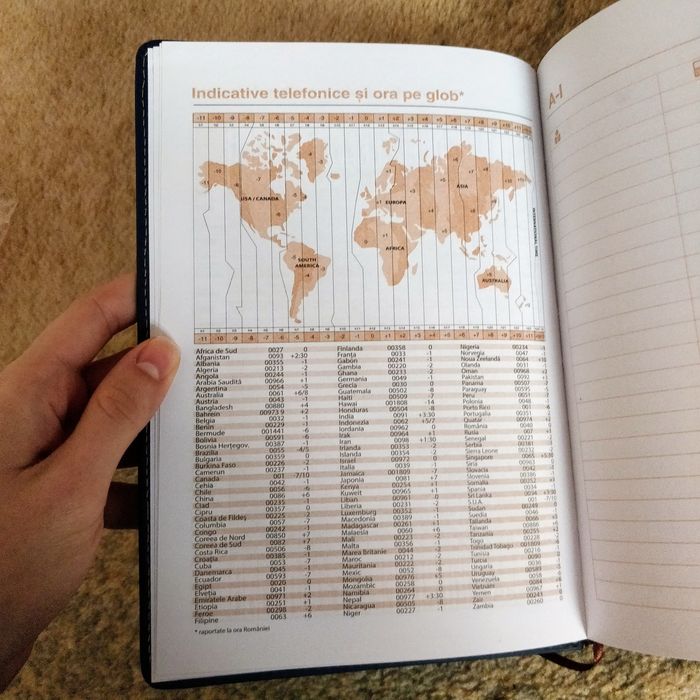 Indicative telefonice și ora pe glob*
-11 -10 -9 -8 -7 -6 -5 -4 -3 -2 -1 0 +1 +2 +3 +4 +5 +6 +7 +8 +9 +10
USA / CANADA
SOUTH
AMERICA
EUROPA
AFRICA
ASIA
AUSTRALIA
INTERNATIONAL TIME
-11 -10 -9 -8 -7 -6 -5 -4 -3 -2 -1 0 +1 +2 +3 +4 +5 +6 +7 +8 +9 +10
Africa de Sud 0027 0
Afganistan 0093 +2:30
Albania 00355 -1
Algeria 00213 -2
Angola 00244 -1
Arabia Saudită 00966 +1
Argentina 0054 -5
Australia 0061 +6/8
Austria 0043 -1
Bangladesh 00880 +4
Bahrein 00973 9 +2
Belgia 0032 -1
Benin 00229 -1
Bermude 001441 -6
Bolivia 00591 -6
Bosnia Herțegov. 00387 -1
Brazilia 0055 -4/5
Bulgaria 00359 0
Burkina Faso 00226 -2
Camerun 00237 -1
Canada 001 -7/10
Cehia 0042 -1
Chile 0056 -6
China 0086 +6
Ciad 00235 -1
Cipru 00357 0
Coasta de Fildeș 00225 -2
Columbia 0057 -7
Congo 00242 -1
Coreea de Nord 00850 +7
Coreea de Sud 0082 +7
Costa Rica 00506 -8
Croația 00385 -1
Cuba 0053 -7
Danemarca 0045 -1
Ecuador 00593 -7
Egipt 0020 0
Elveția 0041 -1
Emiratele Arabe 00971 +2
Etiopia 00251 +1
Feroe 00298 -2
Filipine 0063 +6
Finlanda 00358 0
Franța 0033 -1
Gabon 00241 -1
Gambia 00220 -2
Ghana 00233 -2
Germania 0049 -1
Grecia 0030 0
Guatemala 00502 -8
Haiti 00509 -7
Hawai 001808 -14
Honduras 00504 -8
India 0091 +3:30
Indonezia 0062 +5/7
Iordania 00962 0
Irak 00964 +1
Iran 0098 +1:30
Irlanda 00353 -2
Islanda 00354 -2
Israel 00972 0
Italia 0039 -1
Jamaica 001809 -7
Japonia 0081 +7
Kenya 00254 +1
Kuweit 00965 +1
Liban 00961 0
Liberia 00231 -2
Luxemburg 00352 -1
Macedonia 00389 -1
Madagascar 00261 +1
Malaesia 0060 +6
Mali 00223 -2
Malta 00356 -1
Marea Britanie 0044 -2
Maroc 00212 -2
Mauritania 00222 -2
Mexic 0052 -8
Mongolia 00976 +5
Mozambic 00258 0
Namibia 00264 0
Nepal 00977 +3:30
Nicaragua 00505 -8
Niger 00227 -1
Nigeria 00234
Norvegia 0047 -1
Noua Zeelandă 0064
Olanda 0031 -1
Oman 00968
Pakistan 0092
Panama 00507
Paraguay 00595
Peru 0051
Polonia 0048
Porto Rico 001
Portugalia 00351
Quatar 00974
România 0040
Rusia 007
Senegal 00221
Serbia 00381
Sierra Leone 00232
Singapore 0065
Siria 00963
Slovacia 0042
Slovenia 00386
Somalia 00252
Spania 0034
Sri Lanka 0094
S.U.A. 001
Sudan 00249
Suedia 0046
Tailanda 0066
Taiwan 00886
Tanzania 00255
Togo 00228
Trinidad Tobago 001809
Tunisia 00216
Turcia 0090
Ungaria 0036
Uruguay 00598
Venezuela 0058
Vietnam 0084
Yemen 00967
Zair 00243
Zambia 00260
* raportate la ora României
A-I